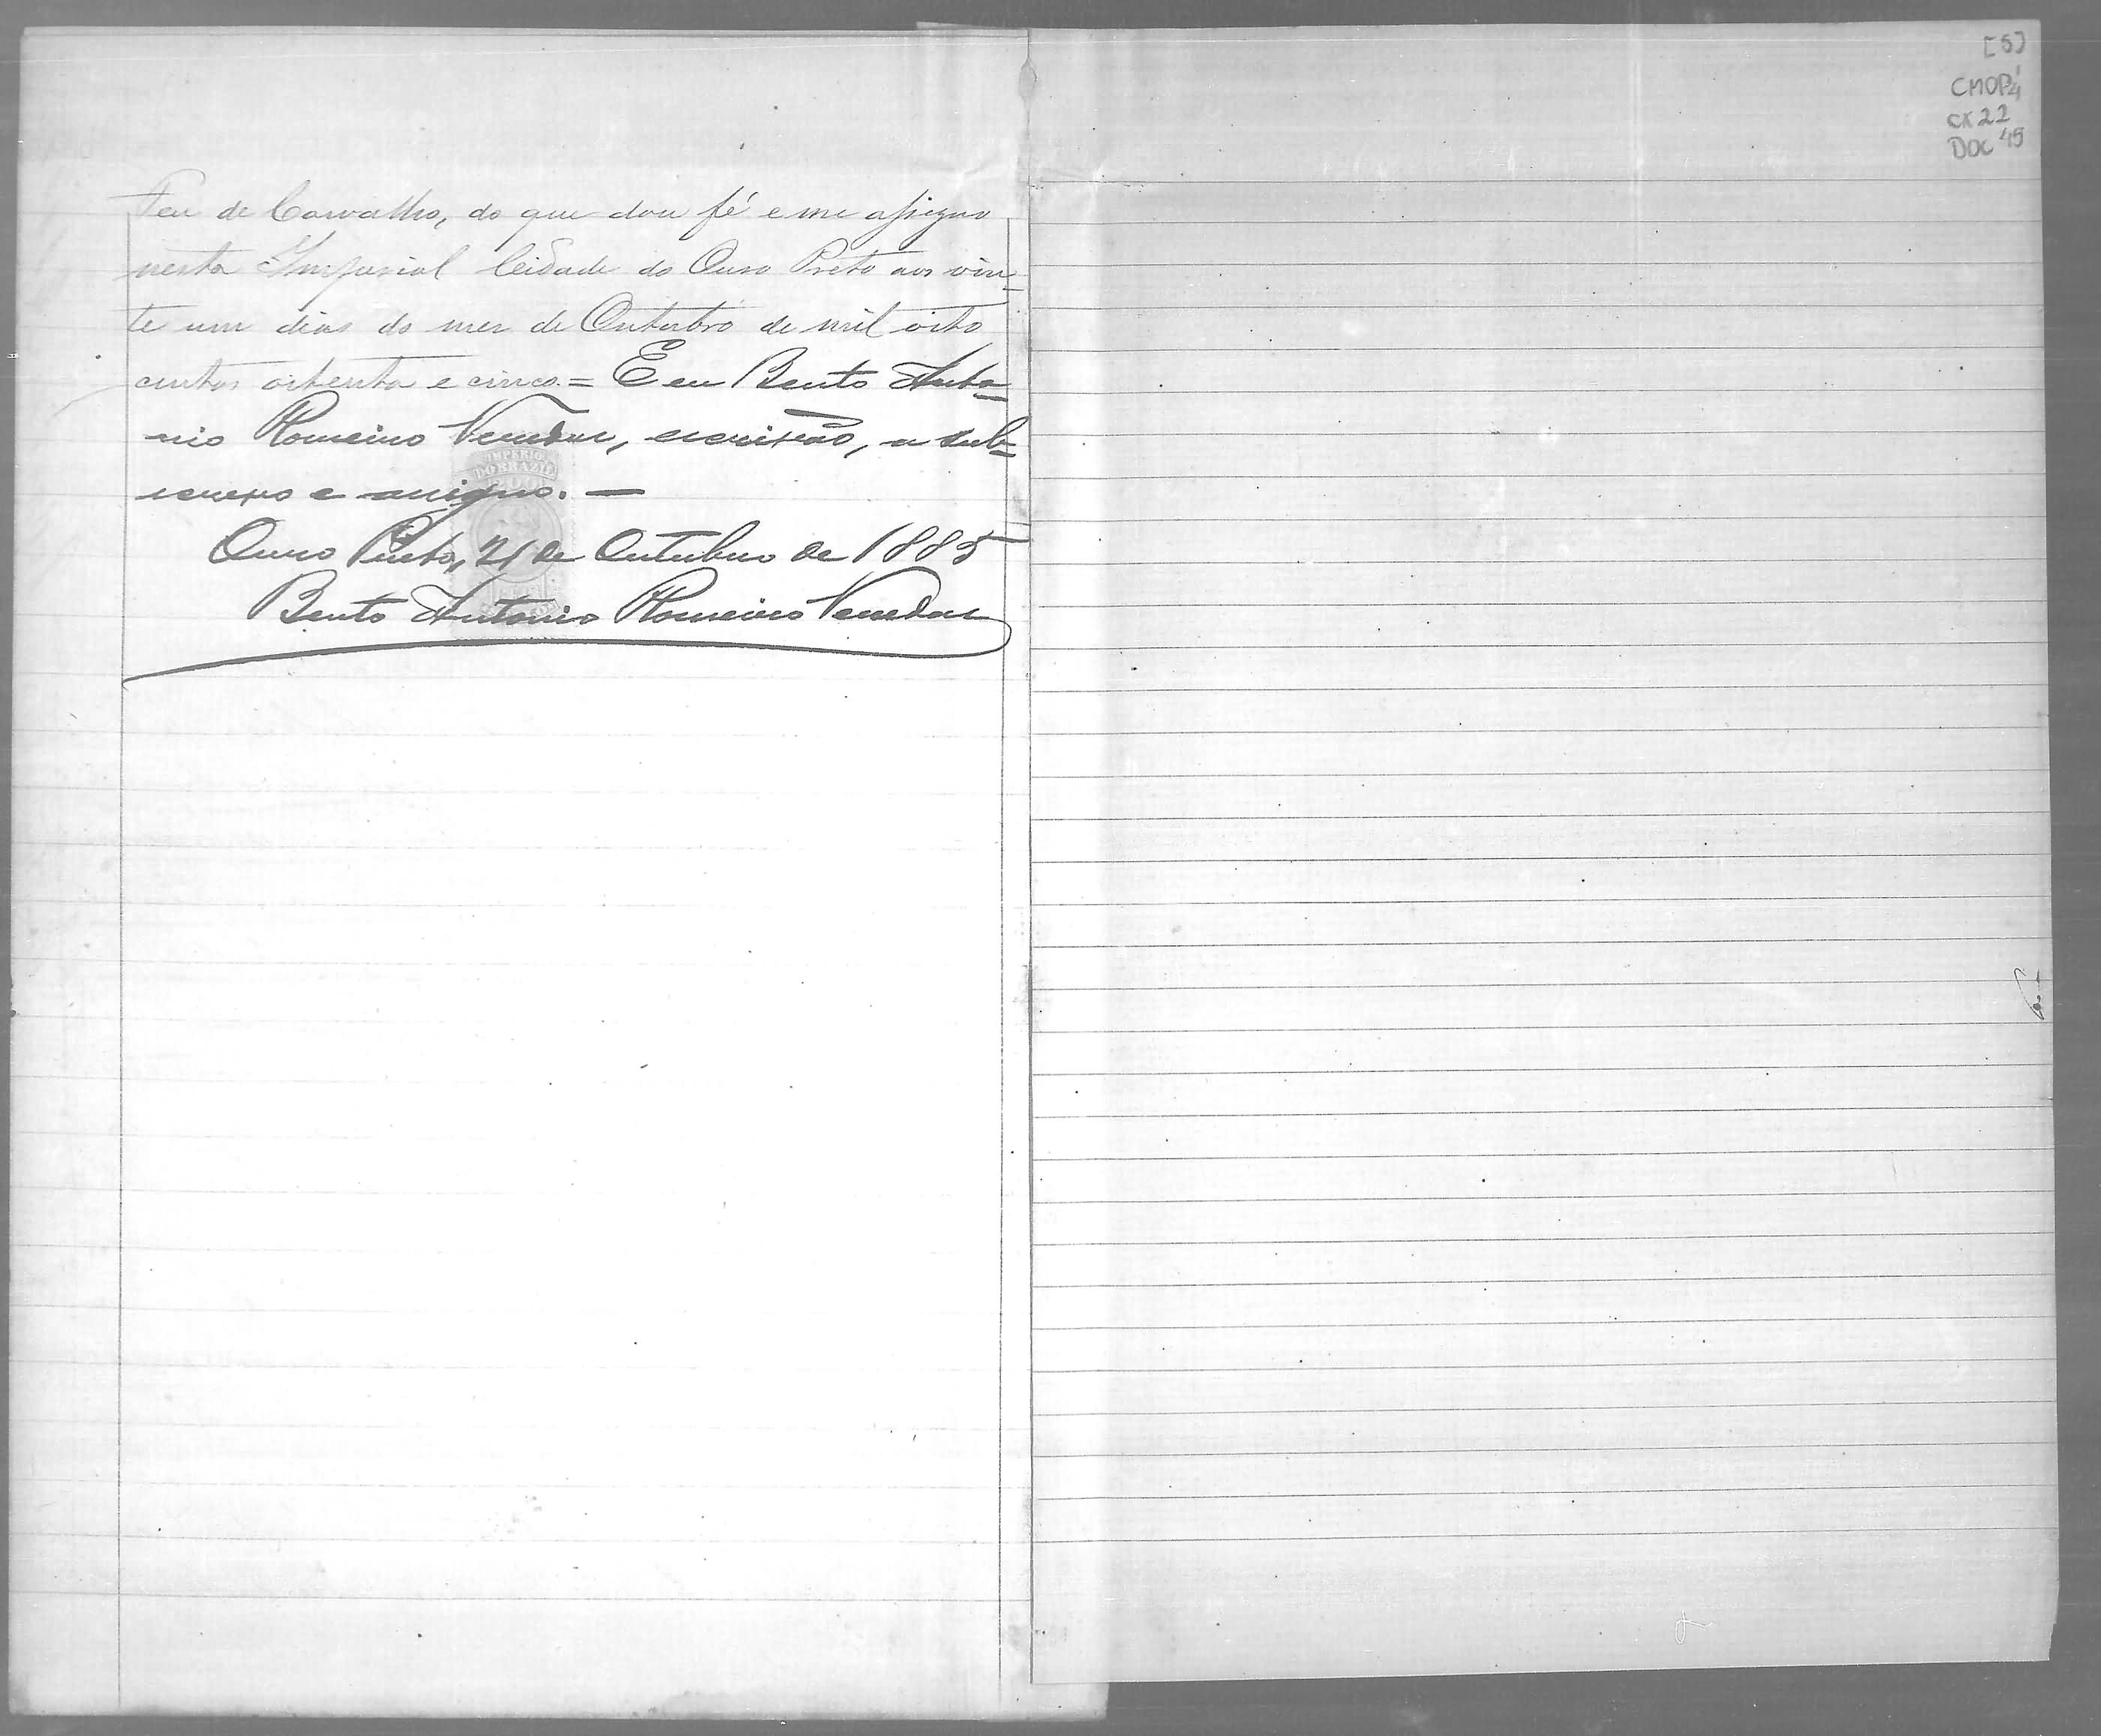 Feu de Carvalho, do que dou fé e me assigno
nesta Imperial Cidade do Ouro Preto aos vin=
te um dias do mez de Outubro de mil oito
centos oitenta e cinco.= E eu Bento Anto=
nio Romeiro Veredas, escrivão, a sub=
screvo e assigno. —
IMPERIO
DO BRAZIL
Ouro Preto, 21 de Outubro de 1885
Bento Antonio Romeiro Veredas
[5]
CMOP
CX 22
DOC 45